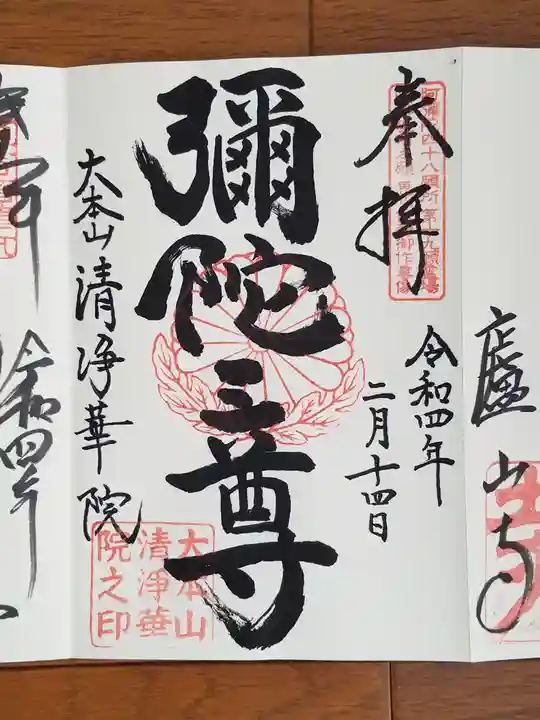 廬山寺
奉拝
阿彌陀四十八願所 第十九
令和四年
二月十四日
彌陀三尊
大本山清浄華院
大本山
清淨華
院之印
令和四年